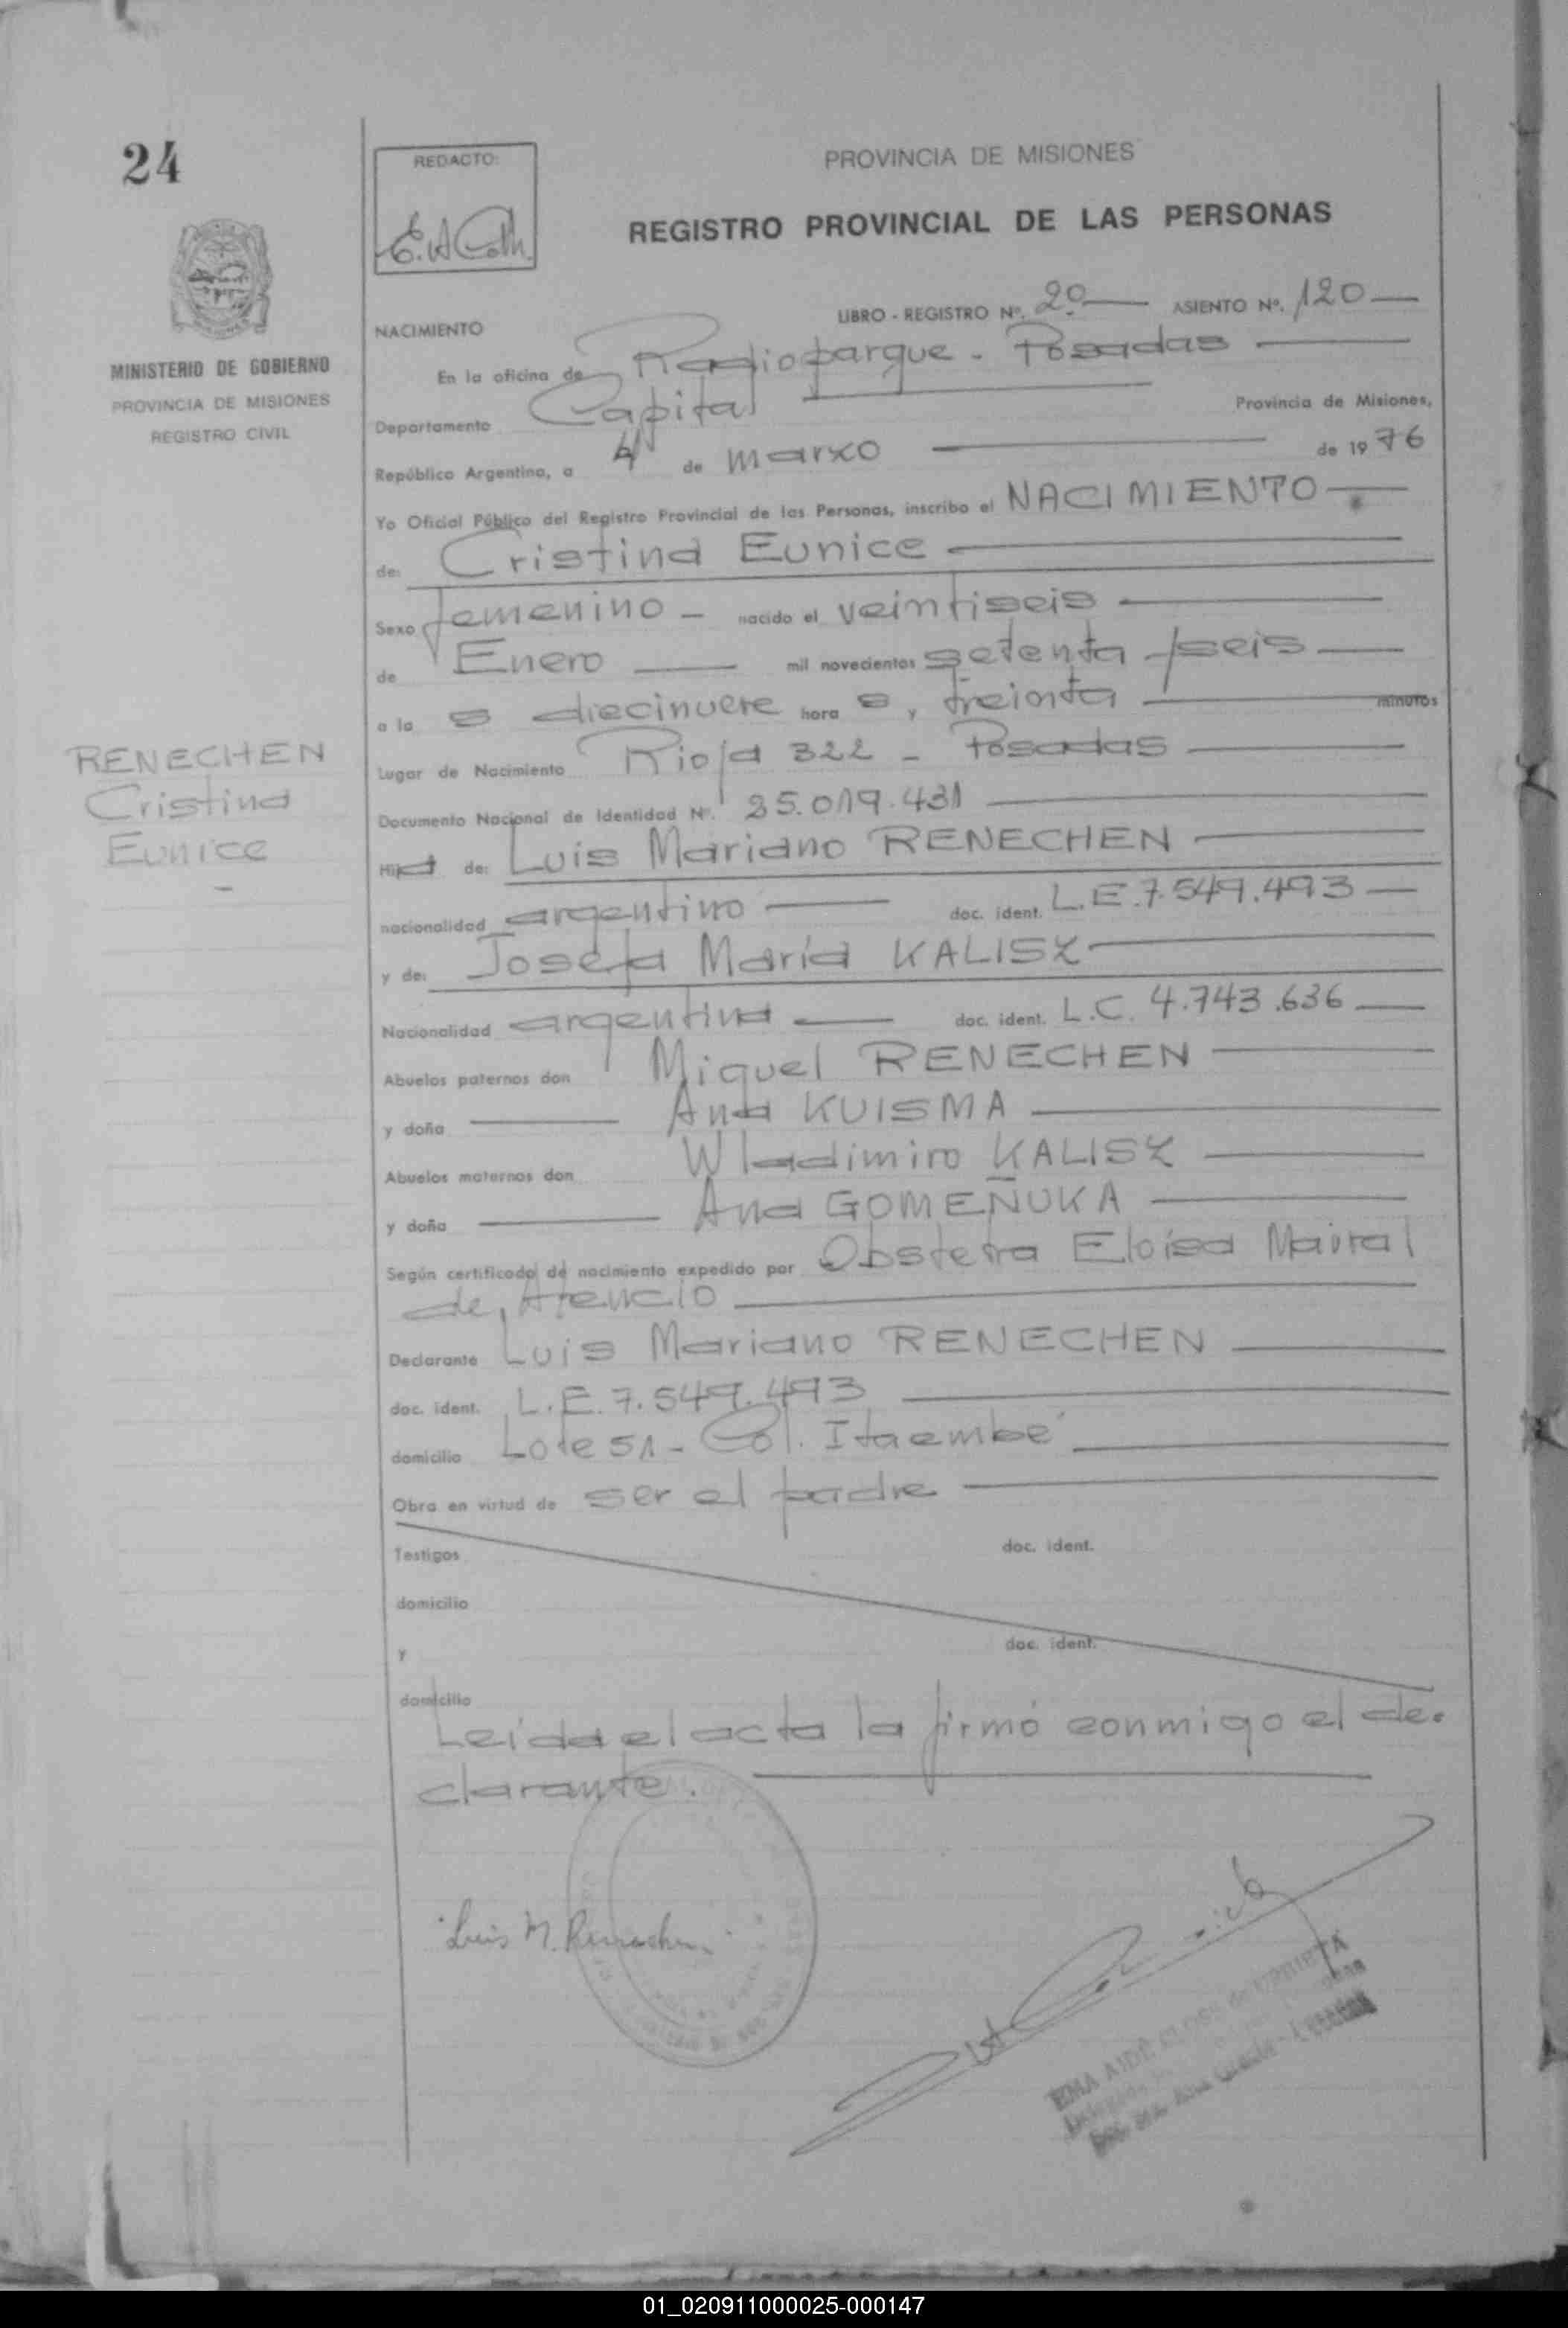 24
MINISTERIO DE GOBIERNO
PROVINCIA DE MISIONES
REGISTRO CIVIL
RENECHEN
Cristina
Eunice
REDACTO:
PROVINCIA DE MISIONES
REGISTRO PROVINCIAL DE LAS PERSONAS
LIBRO - REGISTRO Nº. 2º ASIENTO Nº. 120
NACIMIENTO
En la oficina de Radioparque - Posadas
Departamento Capital Provincia de Misiones,
República Argentina, a 4 de marzo de 1976
Yo Oficial Público del Registro Provincial de las Personas, inscribo el NACIMIENTO
de: Cristina Eunice
Sexo femenino - nacido el veintiseis
de Enero mil novecientos setenta y seis
a la s diecinueve hora s y treinta minutos
Lugar de Nacimiento Rioja 322 - Posadas
Documento Nacional de Identidad Nº. 25.019.431
Hija de: Luis Mariano RENECHEN
nacionalidad argentino doc. ident. L.E. 7.549.493
y de: Josefa María KALISZ
Nacionalidad argentina doc. ident. L.C. 4.743.636
Abuelos paternos don Miguel RENECHEN
y doña Ana KUISMA
Abuelos maternos don Wladimiro KALISZ
y doña Ana GOMEÑUKA
Según certificado de nacimiento expedido por Obstetra Eloísa Mairal
de Atencio
Declarante Luis Mariano RENECHEN
doc. ident. L.E. 7.549.493
domicilio Lote 51 - Col. Itaembé
Obra en virtud de ser el padre
Testigos doc. ident.
domicilio
y doc. ident.
domicilio
Leída el acta la firmó conmigo el de-
clarante.
Luis M. Renechen
EMA AIDÉ
01_020911000025-000147